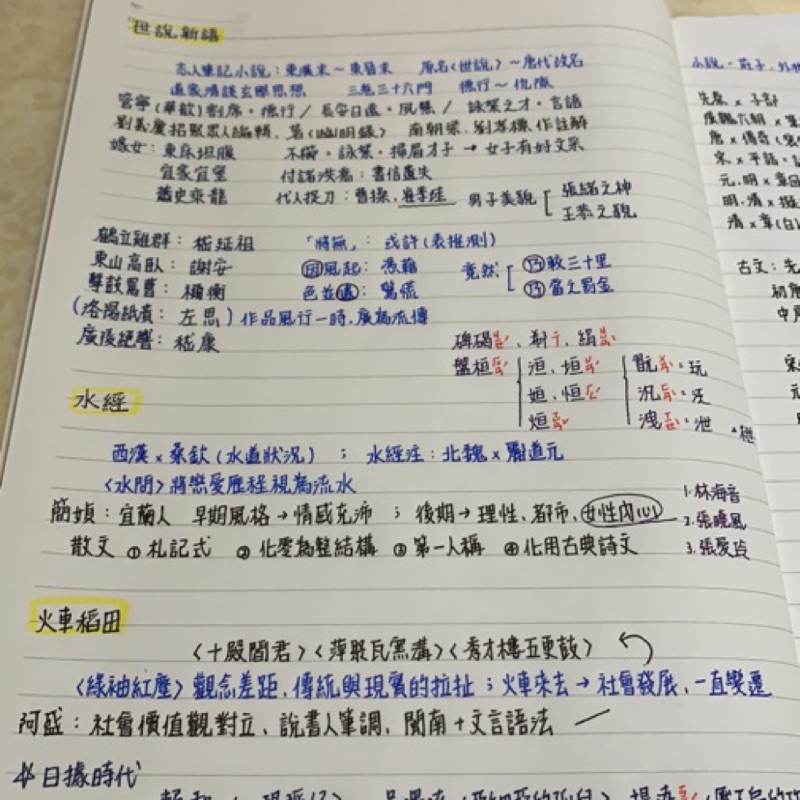 世說新語
志人筆記小說：東漢末～東晉末 原名〈世說〉～唐代改名
道家清談玄虛思想 三卷三十六門 德行～仇隙
管寧(華歆)割席·德行／長安日遠·夙慧／詠絮之才·言語
劉義慶招聚眾人編輯，著〈幽明錄〉 南朝梁，劉孝標作註解
嫁女：東床坦腹 不櫛·詠絮·掃眉才子→女子有好文采
宜家宜室 付諸洪喬：書信遺失
蕭史乘龍 代人捉刀：曹操、崔季珪 男子美貌 [ 張緒之神
王恭之貌
鶴立雞群：嵇延祖 「將無」：或許(表推測)
東山高臥：謝安 因風起：憑藉 竟然：[ 乃較三十里
擊鼓罵曹：禰衡 色並遽：驚慌 乃當之罰金
(洛陽紙貴：左思) 作品風行一時，廣為流傳
廣陵絕響：嵇康
盤桓 洹、垣 翫 玩
姮、恒 汎 泛
烜 洩 泄
水經
西漢×桑欽(水道狀況) ； 水經注：北魏×酈道元
〈水問〉將戀愛歷程視為流水
簡媜：宜蘭人 早期風格→情感充沛 ； 後期→理性、都市、女性內心
散文 ①札記式 ②化零為整結構 ③第一人稱 ④化用古典詩文
1.林海音
2.張曉風
3.張愛玲
火車稻田
〈十殿閻君〉〈萍聚瓦窯溝〉〈秀才樓五更鼓〉
〈綠袖紅塵〉觀念差距，傳統與現實的拉扯；火車來去→社會發展、一直變遷
阿盛：社會價值觀對立、說書人筆調、閩南+文言語法
日據時代
小說·莊子·外物
先秦×子
唐×傳奇
宋×平話
元、明×章回
明、清×擬
清×章(白)
古文：先